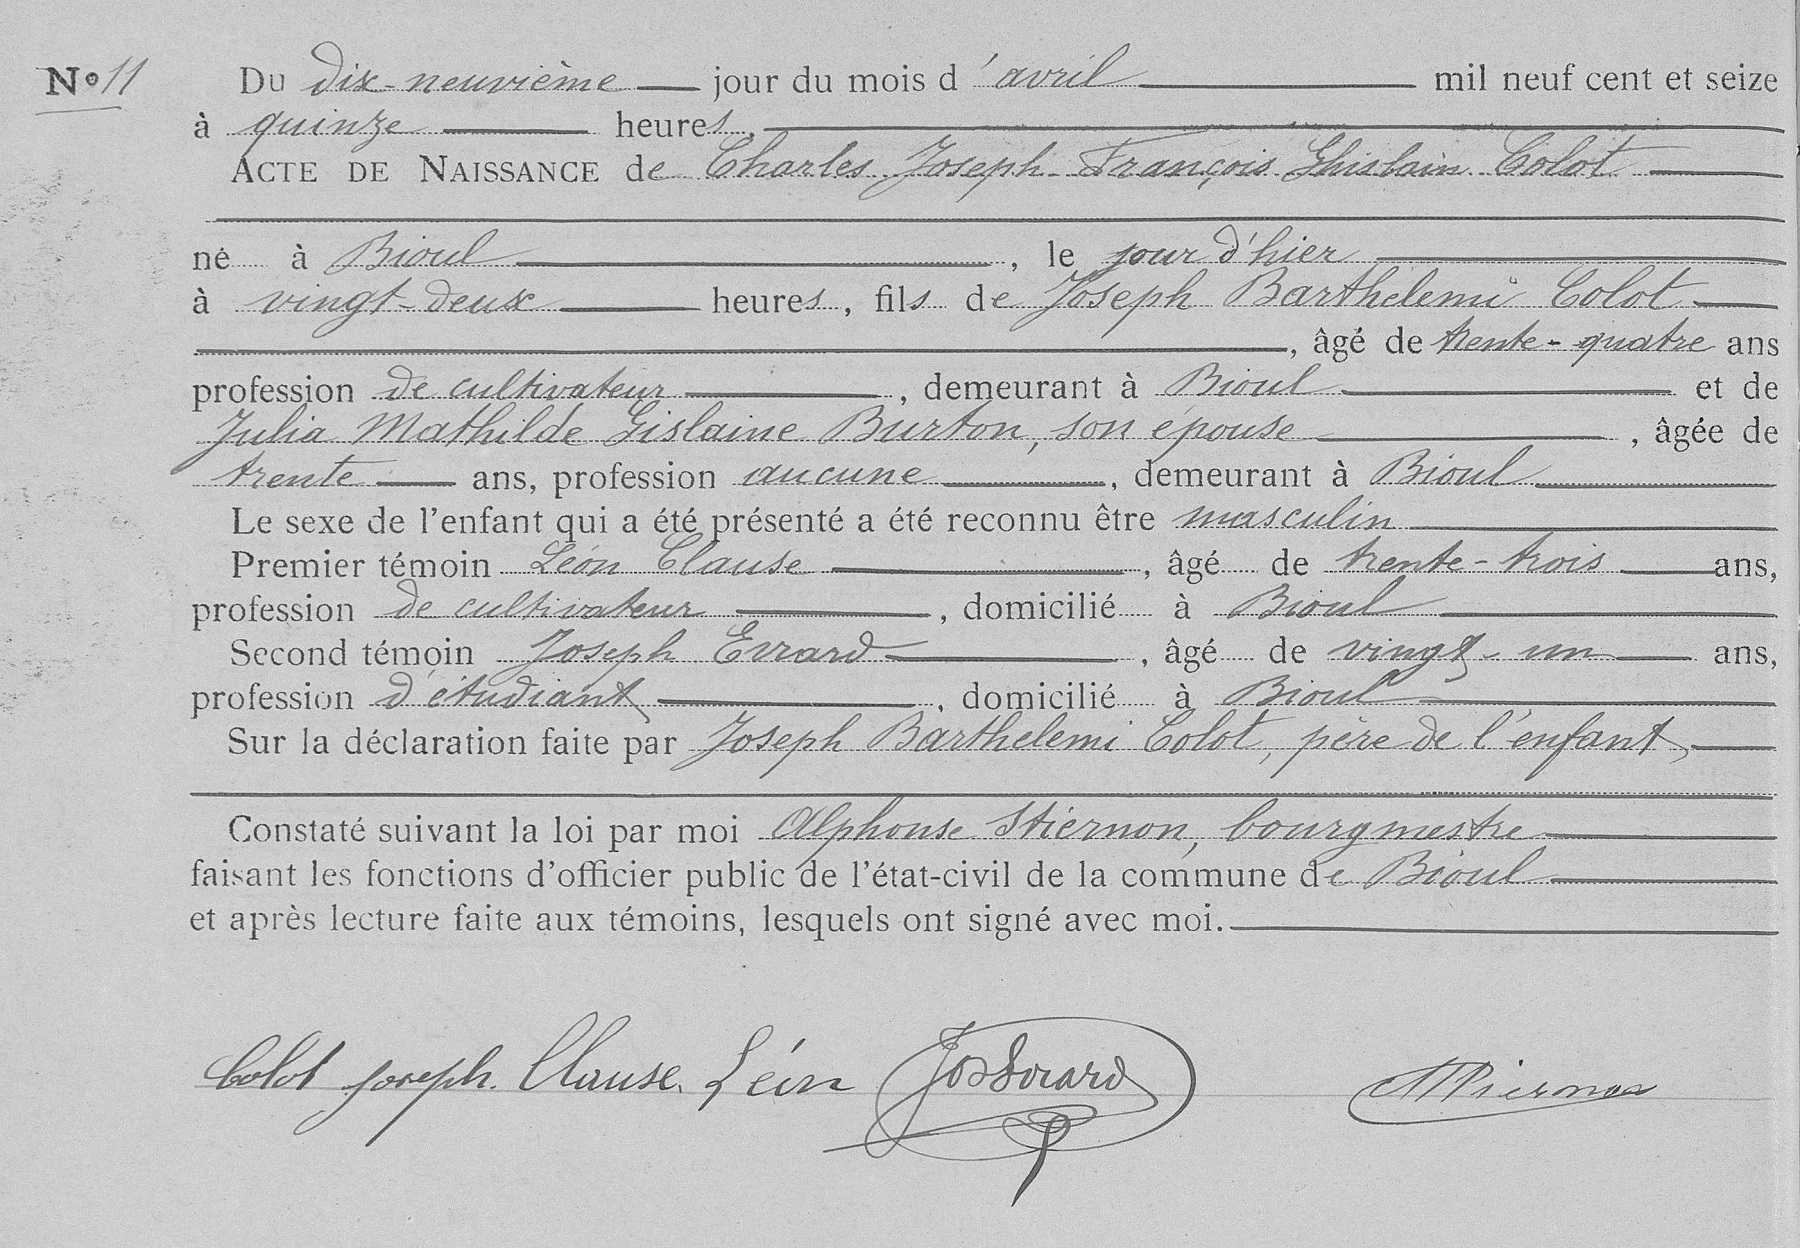 N° 11
Du dix-neuvième jour du mois d'avril mil neuf cent et seize
à quinze heures,
ACTE DE NAISSANCE de Charles Joseph François Ghislain Colot
né à Bioul, le jour d'hier
à vingt-deux heures, fils de Joseph Barthelemi Colot
, âgé de trente-quatre ans
profession de cultivateur, demeurant à Bioul et de
Julia Mathilde Gislaine Burton, son épouse, âgée de
trente ans, profession aucune, demeurant à Bioul
Le sexe de l'enfant qui a été présenté a été reconnu être masculin
Premier témoin Léon Clause, âgé de trente-trois ans,
profession de cultivateur, domicilié à Bioul
Second témoin Joseph Evrard, âgé de vingt-un ans,
profession d'étudiant, domicilié à Bioul
Sur la déclaration faite par Joseph Barthelemi Colot, père de l'enfant,
Constaté suivant la loi par moi Alphonse Stiernon, bourgmestre
faisant les fonctions d'officier public de l'état-civil de la commune de Bioul
et après lecture faite aux témoins, lesquels ont signé avec moi.
Colot Joseph. Clause. Léon Jos Evrard AStiernon